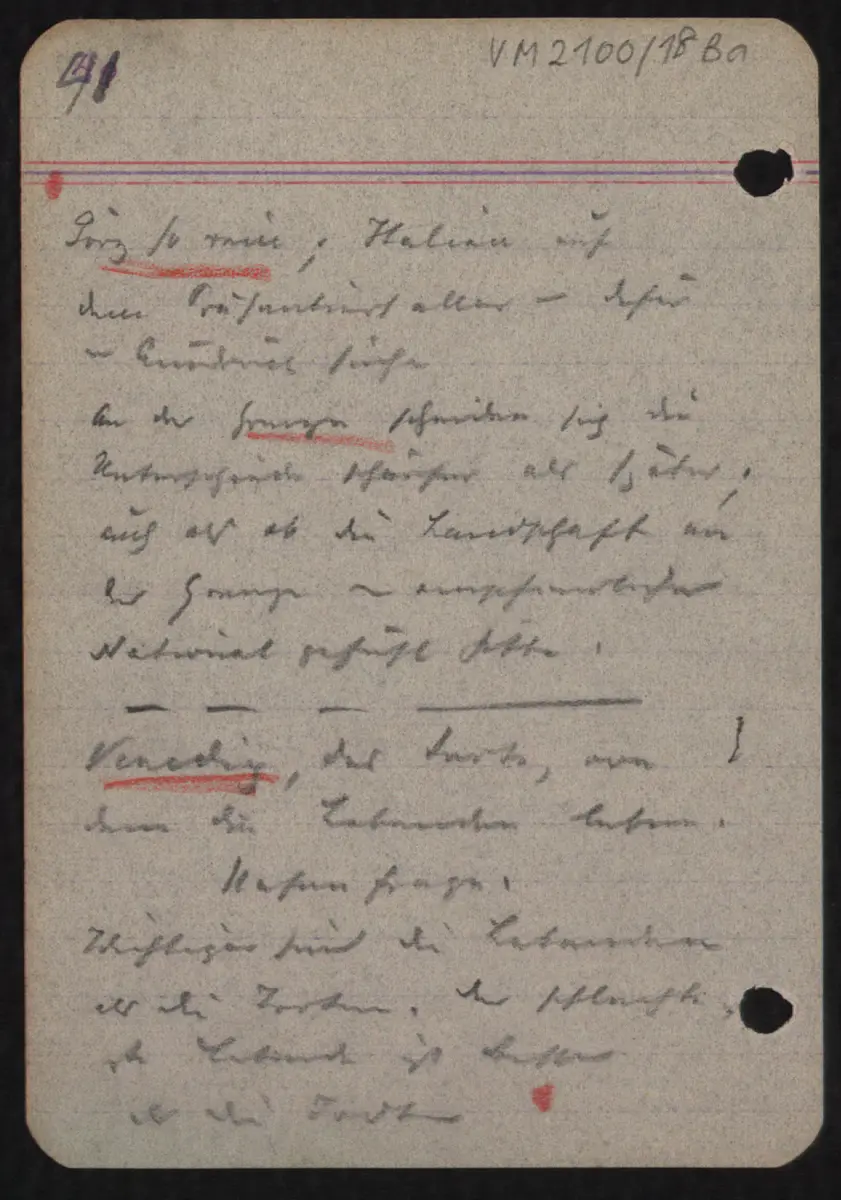 41
VM2100/18 Ba
Görz so rein, Italien auf
dem Präsentiert aller – dafür
Ausdruck suche
An der Grenze scheiden sich die
Unterschiede schärfer als später,
auch als ob die Landschaft an
der Grenze ein empfindlicher
National gefühl hätte.
Venedig, der Tote, von
dem die Lebenden leben.
Hafen frage.
Wichtiger sind die Lebenden
als die Toten. Der schlechte
ste Lebende ist besser
als die Todten